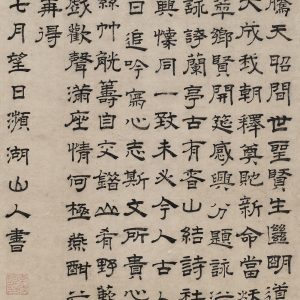 騰天昭間世聖賢生明道
大成我朝釋奠馳新命當
鄉賢開筵感興分題詠
詠蘭亭古有香山結詩社
興懷同一致未必今人古人
日追吟寫心志斯文所貴心
絲竹觥籌自交錯山肴野
戲歡聲滿座情何極燕酣
再得
七月望日瀕湖山人書